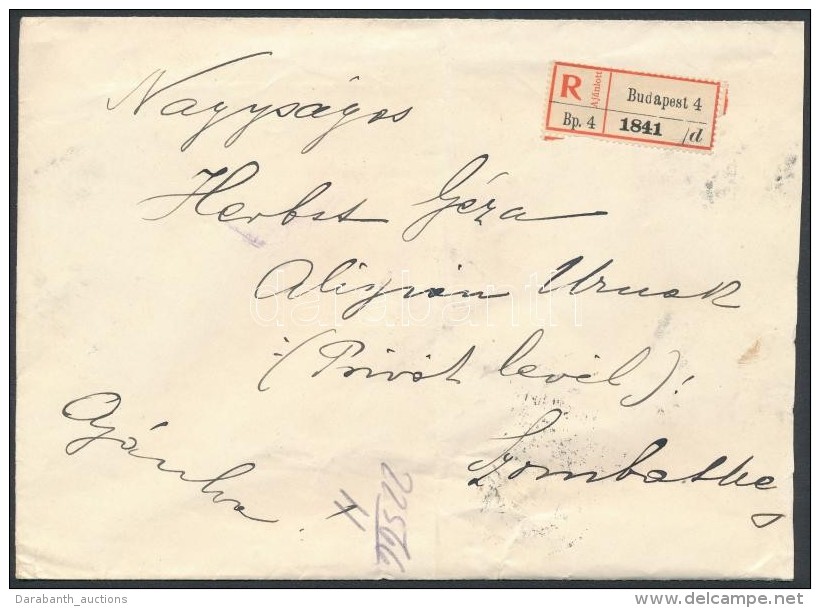 Nagyságos
R Ajánlott Budapest 4
Bp. 4 1841 /d
Herbst Géza
Urnak
darabanth
:(Privát levél):
Ajánlva.
Szombathely
Darabanth_auctions
delcampe.net